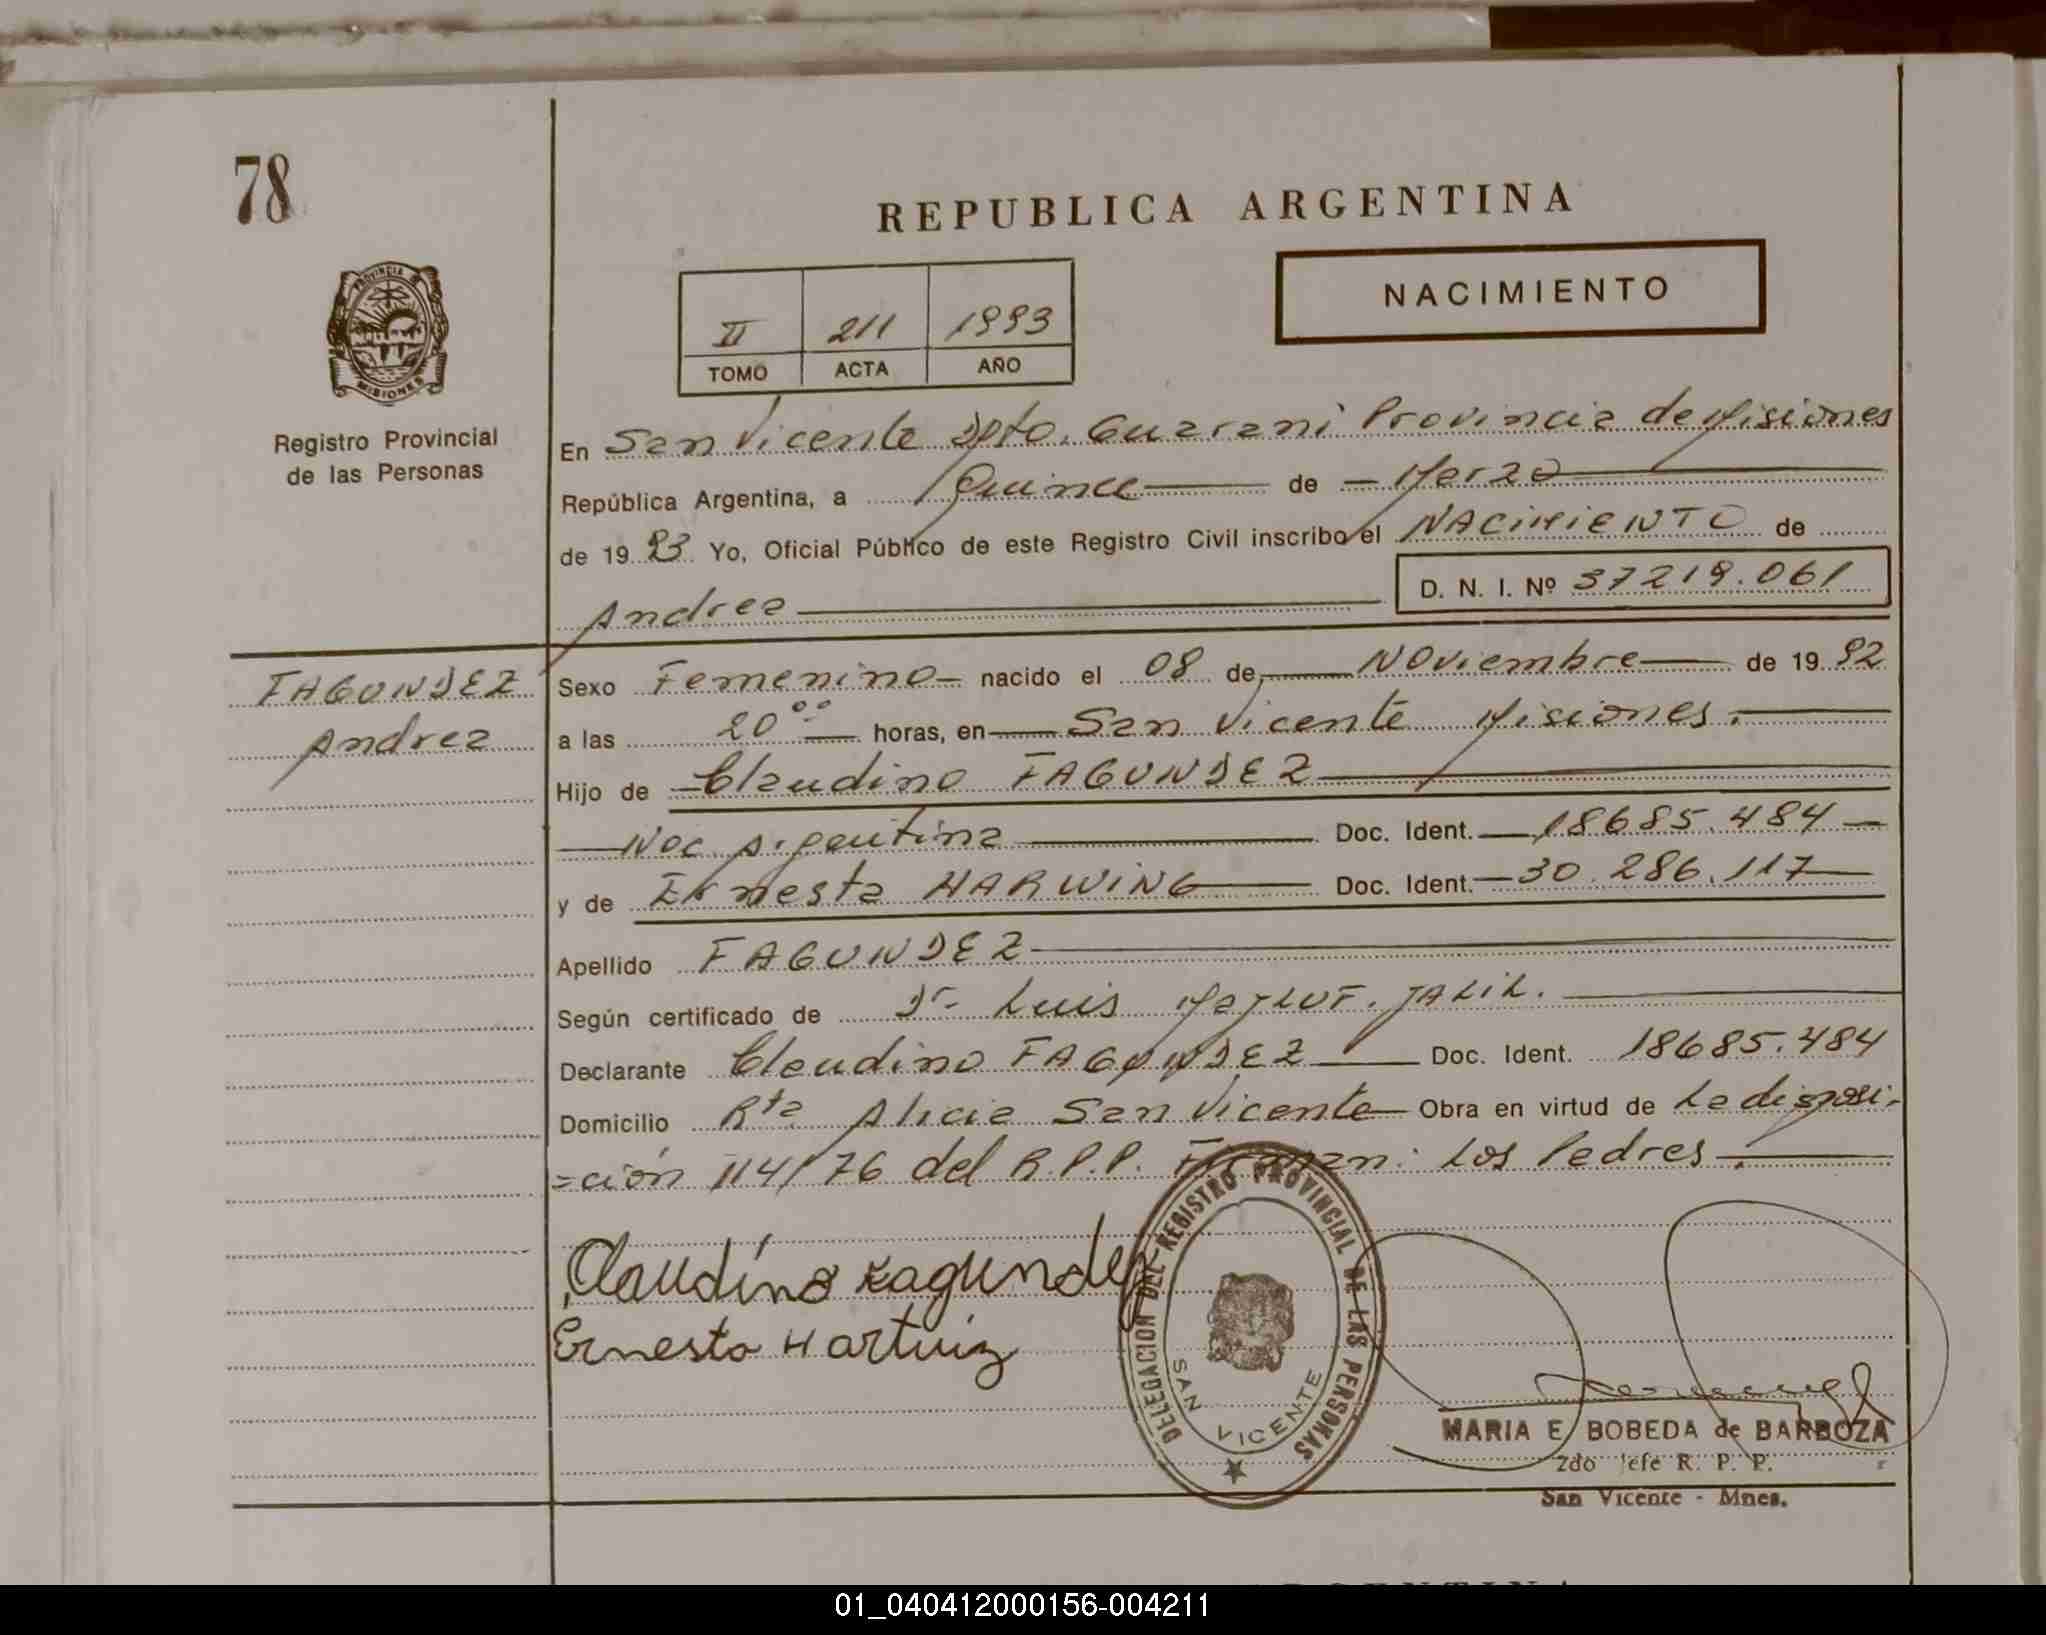 78
REPUBLICA ARGENTINA
NACIMIENTO
II 211 1993
TOMO ACTA AÑO
PROVINCIA DE
MISIONES
Registro Provincial
de las Personas
En San Vicente Dpto. Guarani Provincia de Misiones
República Argentina, a Quince de Marzo
de 19 93 Yo, Oficial Público de este Registro Civil inscribo el NACIMIENTO de
Andrea D. N. I. Nº 37219.061
FAGUNDEZ
Andrea
Sexo Femenino nacido el 08 de Noviembre de 19 92
a las 20 ºº horas, en San Vicente Misiones.
Hijo de Claudino FAGUNDEZ
Nac. Argentina Doc. Ident. 18685.484
y de Ernesta HARWING Doc. Ident. 30.286.117
Apellido FAGUNDEZ
Según certificado de Dr. Luis JALIL.
Declarante Claudino FAGUNDEZ Doc. Ident. 18685.484
Domicilio Rta Alicia San Vicente Obra en virtud de La disposi-
=ción 114/76 del R.P.P. Firman: Los Padres.
Claudino Fagundez
Ernesta Hartwig
DELEGACION DEL REGISTRO PROVINCIAL DE LAS PERSONAS
SAN VICENTE
MARIA E. BOBEDA de BARBOZA
2do Jefe R. P. P.
San Vicente - Mnes.
01_040412000156-004211